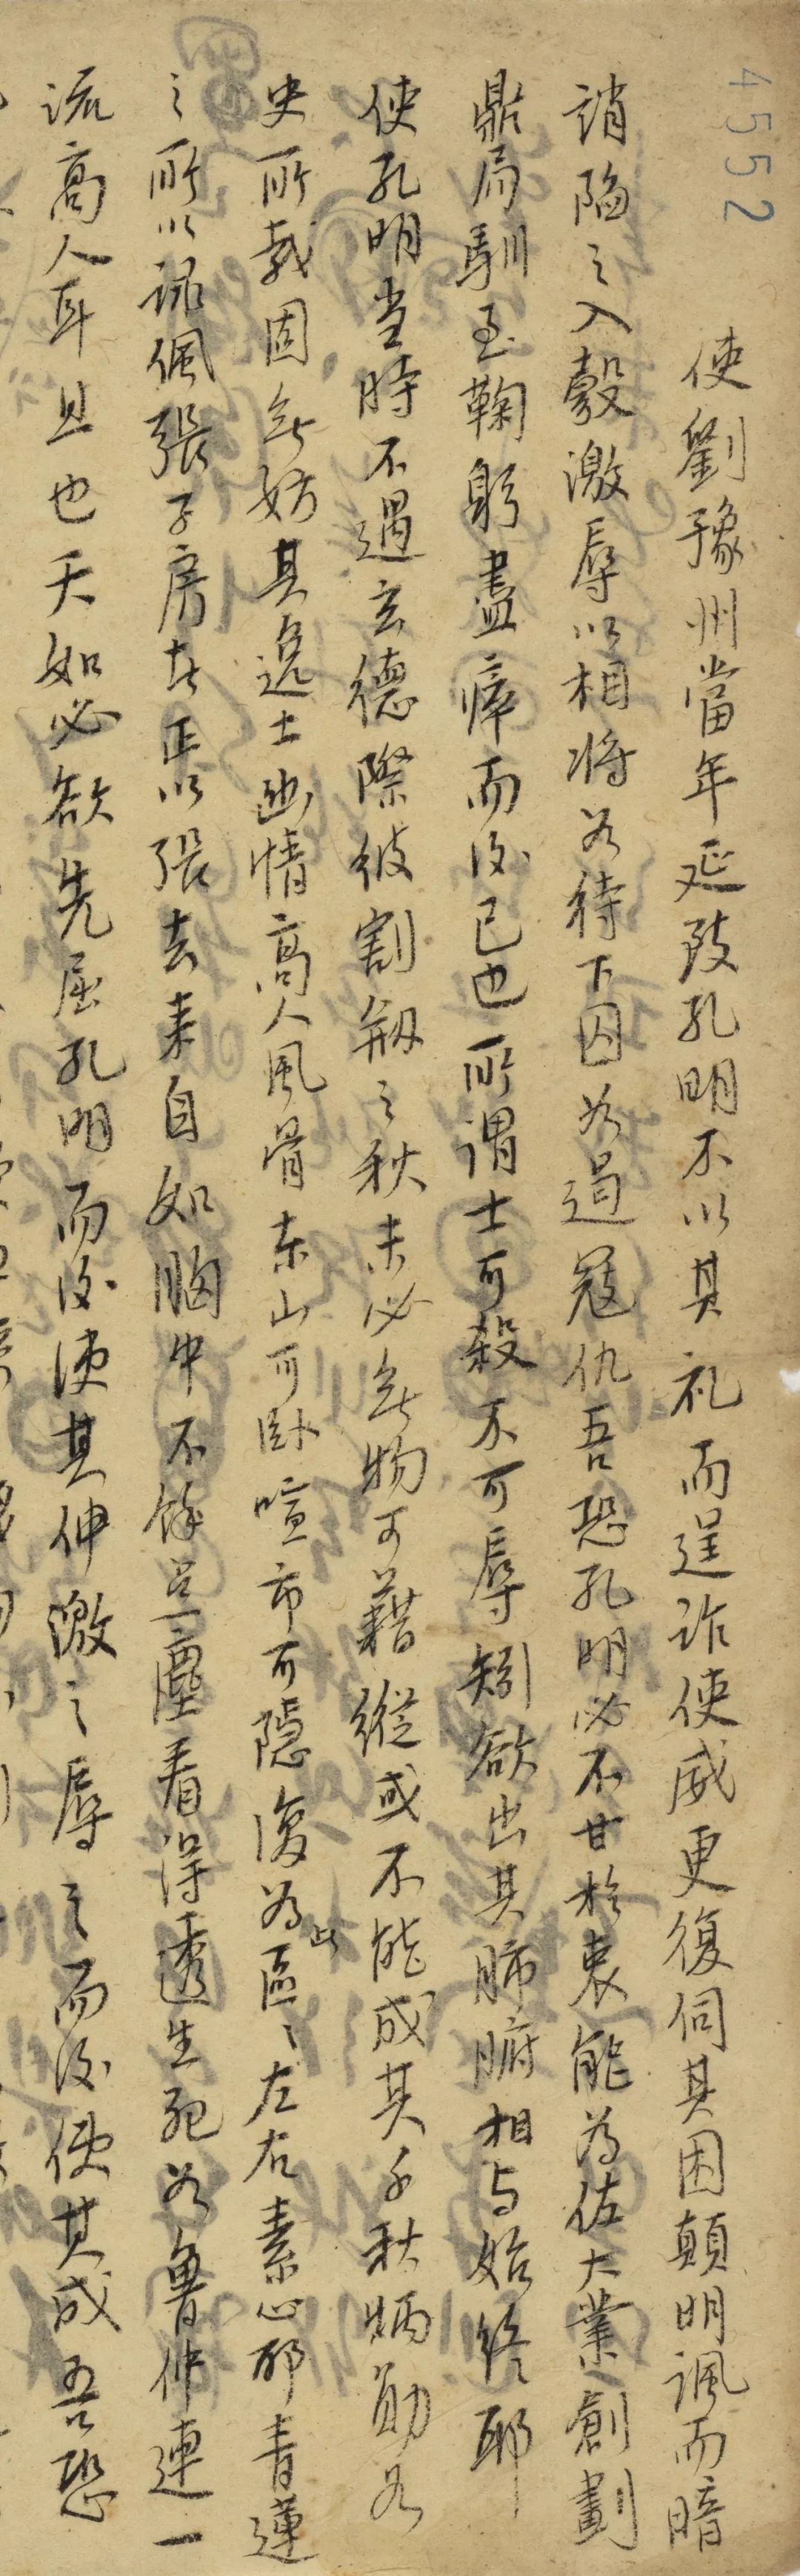 4552
使劉豫州當年延致孔明不以其礼而逞詐使威更復伺其困顛明諷而暗
誚陷之入彀激辱以相將如待下囚如過寇仇吾恐孔明必不甘於衷能為佐大業創劃
鼎局馴至鞠躬盡瘁而後已也所謂士可殺不可辱矧欲出其肺腑相与始終耶
使孔明当時不遇玄德際彼割劒之秋未必無物可藉縱或不能成其千秋炳勛如
史所載固無妨其逸士幽情高人風骨東山可卧喧市可隱復為此區〻左右素心耶青蓮
之所以誠佩張子房者正以張去来自如胸中不餘点塵看得透生死如魯仲連一
流高人耳且也天如必欲先屈孔明而後使其伸激之辱之而後使其成吾恐